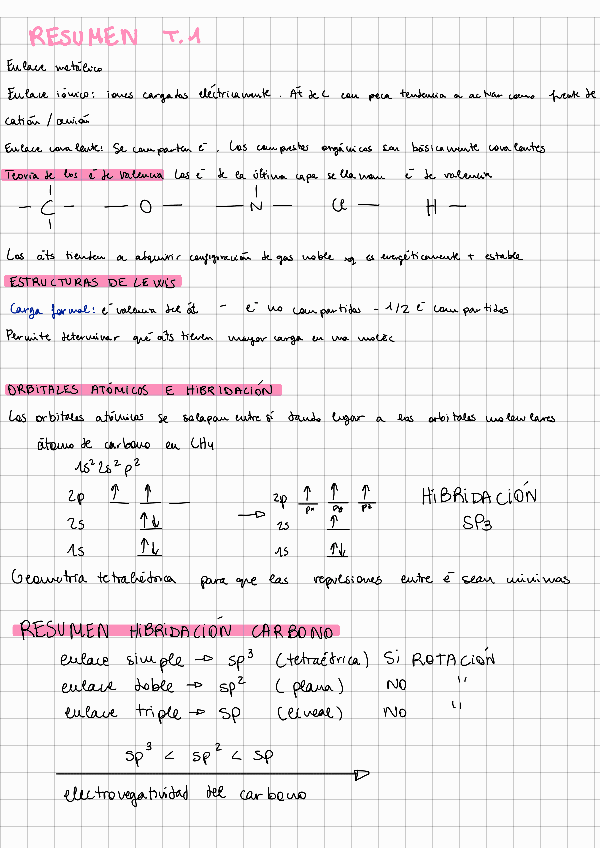 RESUMEN T.1
Enlace metálico
Enlace iónico: iones cargados eléctricamente. Át de C con poca tendencia a actuar como fuente de
catión / anión
Enlace covalente: Se comparten ē. Los compuestos orgánicos son básicamente covalentes
Teoría de los ē de valencia Los ē de la última capa se llaman ē de valencia
— C — — O — — N — Cl — H —
Los áts tienden a adquirir configuración de gas noble xq es energéticamente + estable
ESTRUCTURAS DE LEWIS
Carga formal: ē valencia del át - ē no compartidos - 1/2 ē compartidos
Permite determinar qué áts tienen mayor carga en una moléc
ORBITALES ATÓMICOS E HIBRIDACIÓN
Los orbitales atómicos se solapan entre sí dando lugar a los orbitales moleculares
átomo de carbono en CH4
1s² 2s² p²
2p ↑ ↑ __ → 2p ↑ ↑ ↑ HIBRIDACIÓN
px py pz
2s ↑↓ 2s ↑ SP3
1s ↑↓ 1s ↑↓
Geometría tetraédrica para que las repulsiones entre ē sean mínimas
RESUMEN HIBRIDACIÓN CARBONO
enlace simple → sp³ (tetraédrica) SI ROTACIÓN
enlace doble → sp² (plana) NO "
enlace triple → sp (lineal) NO "
sp³ < sp² < sp
electronegatividad del carbono